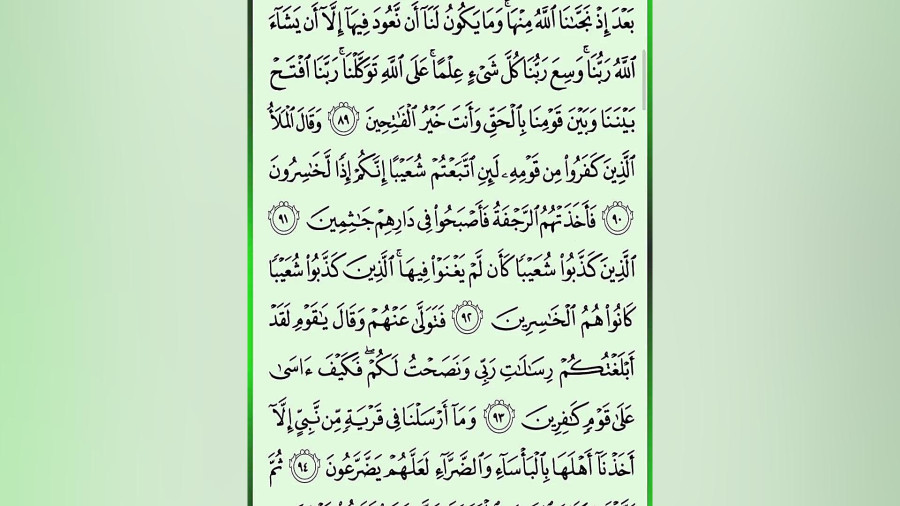 بَعْدَ إِذْ نَجَّىٰنَا ٱللَّهُ مِنْهَا ۚ وَمَا يَكُونُ لَنَآ أَن نَّعُودَ فِيهَآ إِلَّآ أَن يَشَآءَ
ٱللَّهُ رَبُّنَا ۚ وَسِعَ رَبُّنَا كُلَّ شَىْءٍ عِلْمًا ۚ عَلَى ٱللَّهِ تَوَكَّلْنَا ۚ رَبَّنَا ٱفْتَحْ
بَيْنَنَا وَبَيْنَ قَوْمِنَا بِٱلْحَقِّ وَأَنتَ خَيْرُ ٱلْفَٰتِحِينَ ٨٩ وَقَالَ ٱلْمَلَأُ
ٱلَّذِينَ كَفَرُوا۟ مِن قَوْمِهِۦ لَئِنِ ٱتَّبَعْتُمْ شُعَيْبًا إِنَّكُمْ إِذًا لَّخَٰسِرُونَ
٩٠ فَأَخَذَتْهُمُ ٱلرَّجْفَةُ فَأَصْبَحُوا۟ فِى دَارِهِمْ جَٰثِمِينَ ٩١
ٱلَّذِينَ كَذَّبُوا۟ شُعَيْبًا كَأَن لَّمْ يَغْنَوْا۟ فِيهَا ۚ ٱلَّذِينَ كَذَّبُوا۟ شُعَيْبًا
كَانُوا۟ هُمُ ٱلْخَٰسِرِينَ ٩٢ فَتَوَلَّىٰ عَنْهُمْ وَقَالَ يَٰقَوْمِ لَقَدْ
أَبْلَغْتُكُمْ رِسَٰلَٰتِ رَبِّى وَنَصَحْتُ لَكُمْ ۖ فَكَيْفَ ءَاسَىٰ
عَلَىٰ قَوْمٍ كَٰفِرِينَ ٩٣ وَمَآ أَرْسَلْنَا فِى قَرْيَةٍ مِّن نَّبِىٍّ إِلَّآ
أَخَذْنَآ أَهْلَهَا بِٱلْبَأْسَآءِ وَٱلضَّرَّآءِ لَعَلَّهُمْ يَضَّرَّعُونَ ٩٤ ثُمَّ